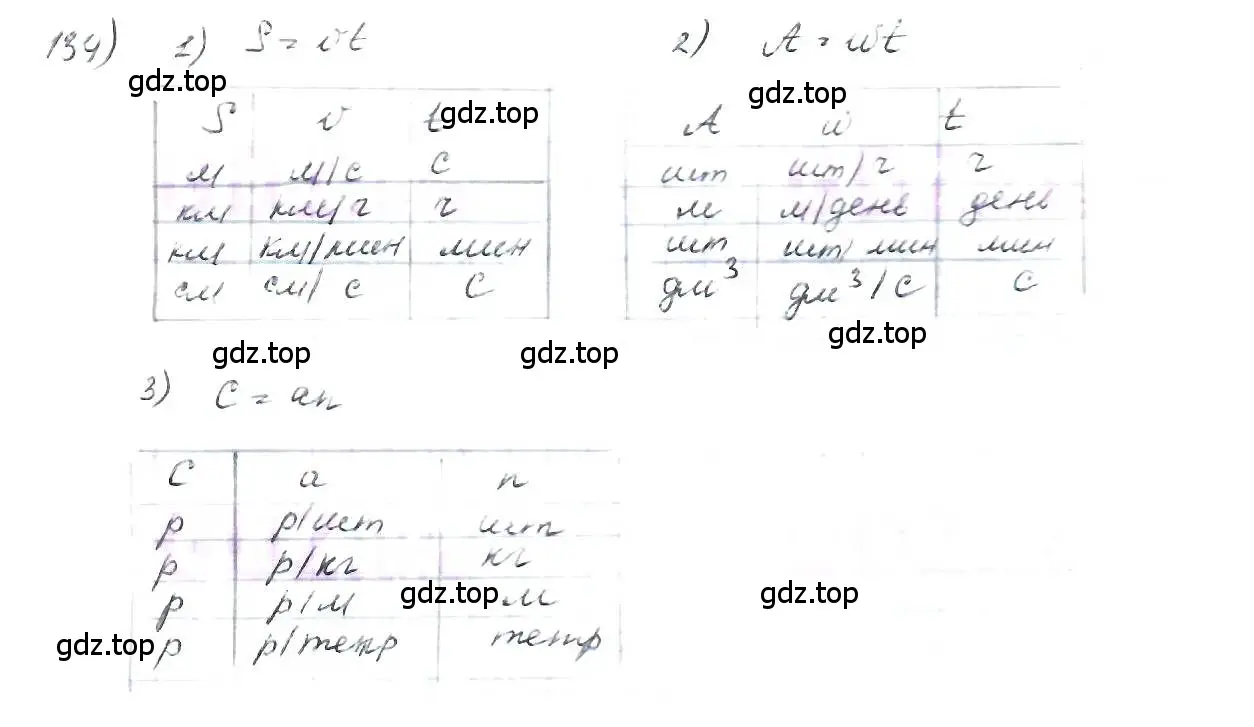 134) 1) S = vt
gdz.top
S v t gdz.top
м м/с с
км км/г г
км км/мин мин
см см/с с
gdz.top gdz.top
2) A = wt
gdz.top
A w t
шт шт/г г
м м/день день
шт шт/мин мин
дм³ дм³/с с
gdz.top
3) C = an
C a n
р р/шт шт
р р/кг кг
р р/м м
gdz.top gdz.top
р р/тетр тетр
gdz.top